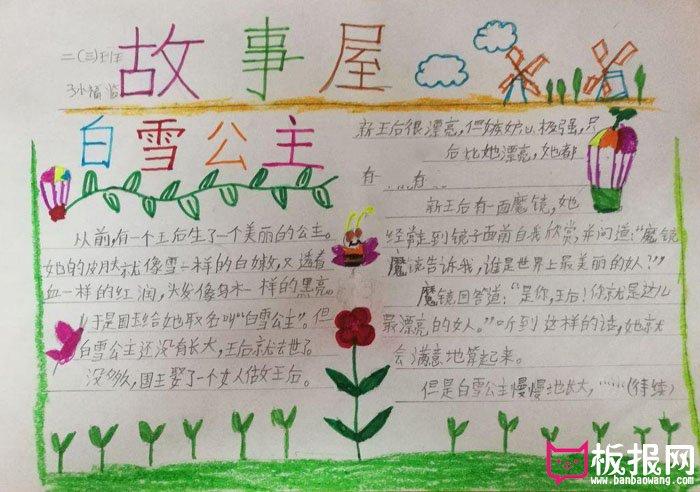 故事屋
二(三)班
白雪公主
从前,有一个王后生了一个美丽的公主。
她的皮肤就像雪一样的白嫩,又透着
血一样的红润,头发像乌木一样的黑亮。
于是国王给她取名叫"白雪公主"。但
白雪公主还没有长大,王后就去世了。
没多久,国王娶了一个女人做王后。
新王后很漂亮,但嫉妒心极强,只
后比她漂亮,她都
有
新王后有一面魔镜,她
经常走到镜子面前自我欣赏,并问道:"魔镜
魔镜告诉我,谁是世界上最美丽的女人?"
魔镜回答道:"是你,王后!你就是这儿
最漂亮的女人。"听到这样的话,她就
会满意地笑起来。
但是白雪公主慢慢地长大,……(待续)
板报网
www.banbaowang.com